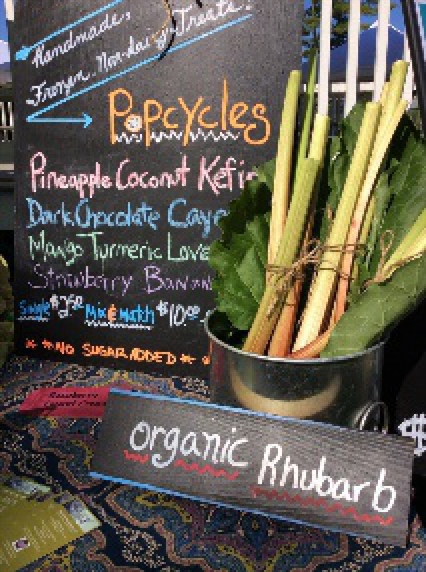 Handmade,
Frozen, Non-dairy Treats!
Popcycles
Pineapple Coconut Kefir
Dark Chocolate Caye
Mango Turmeric Love
Strawberry Banan
Single $2.50 Mix & Match $10.00
* * NO SUGAR ADDED * *
organic Rhubarb
$